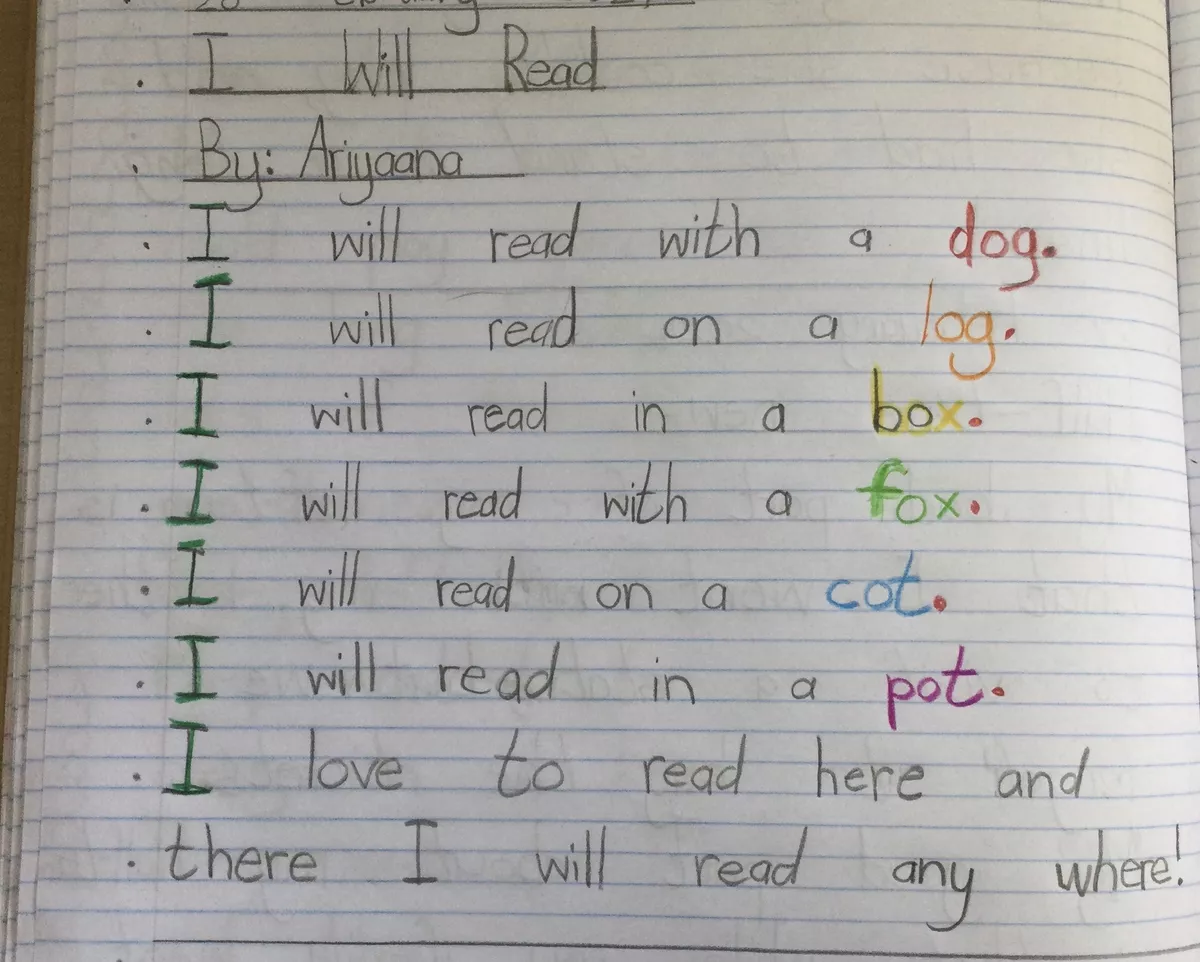 I Will Read
By: Ariyaana
I will read with a dog.
I will read on a log.
I will read in a box.
I will read with a fox.
I will read on a cot.
I will read in a pot.
I love to read here and
there I will read any where!